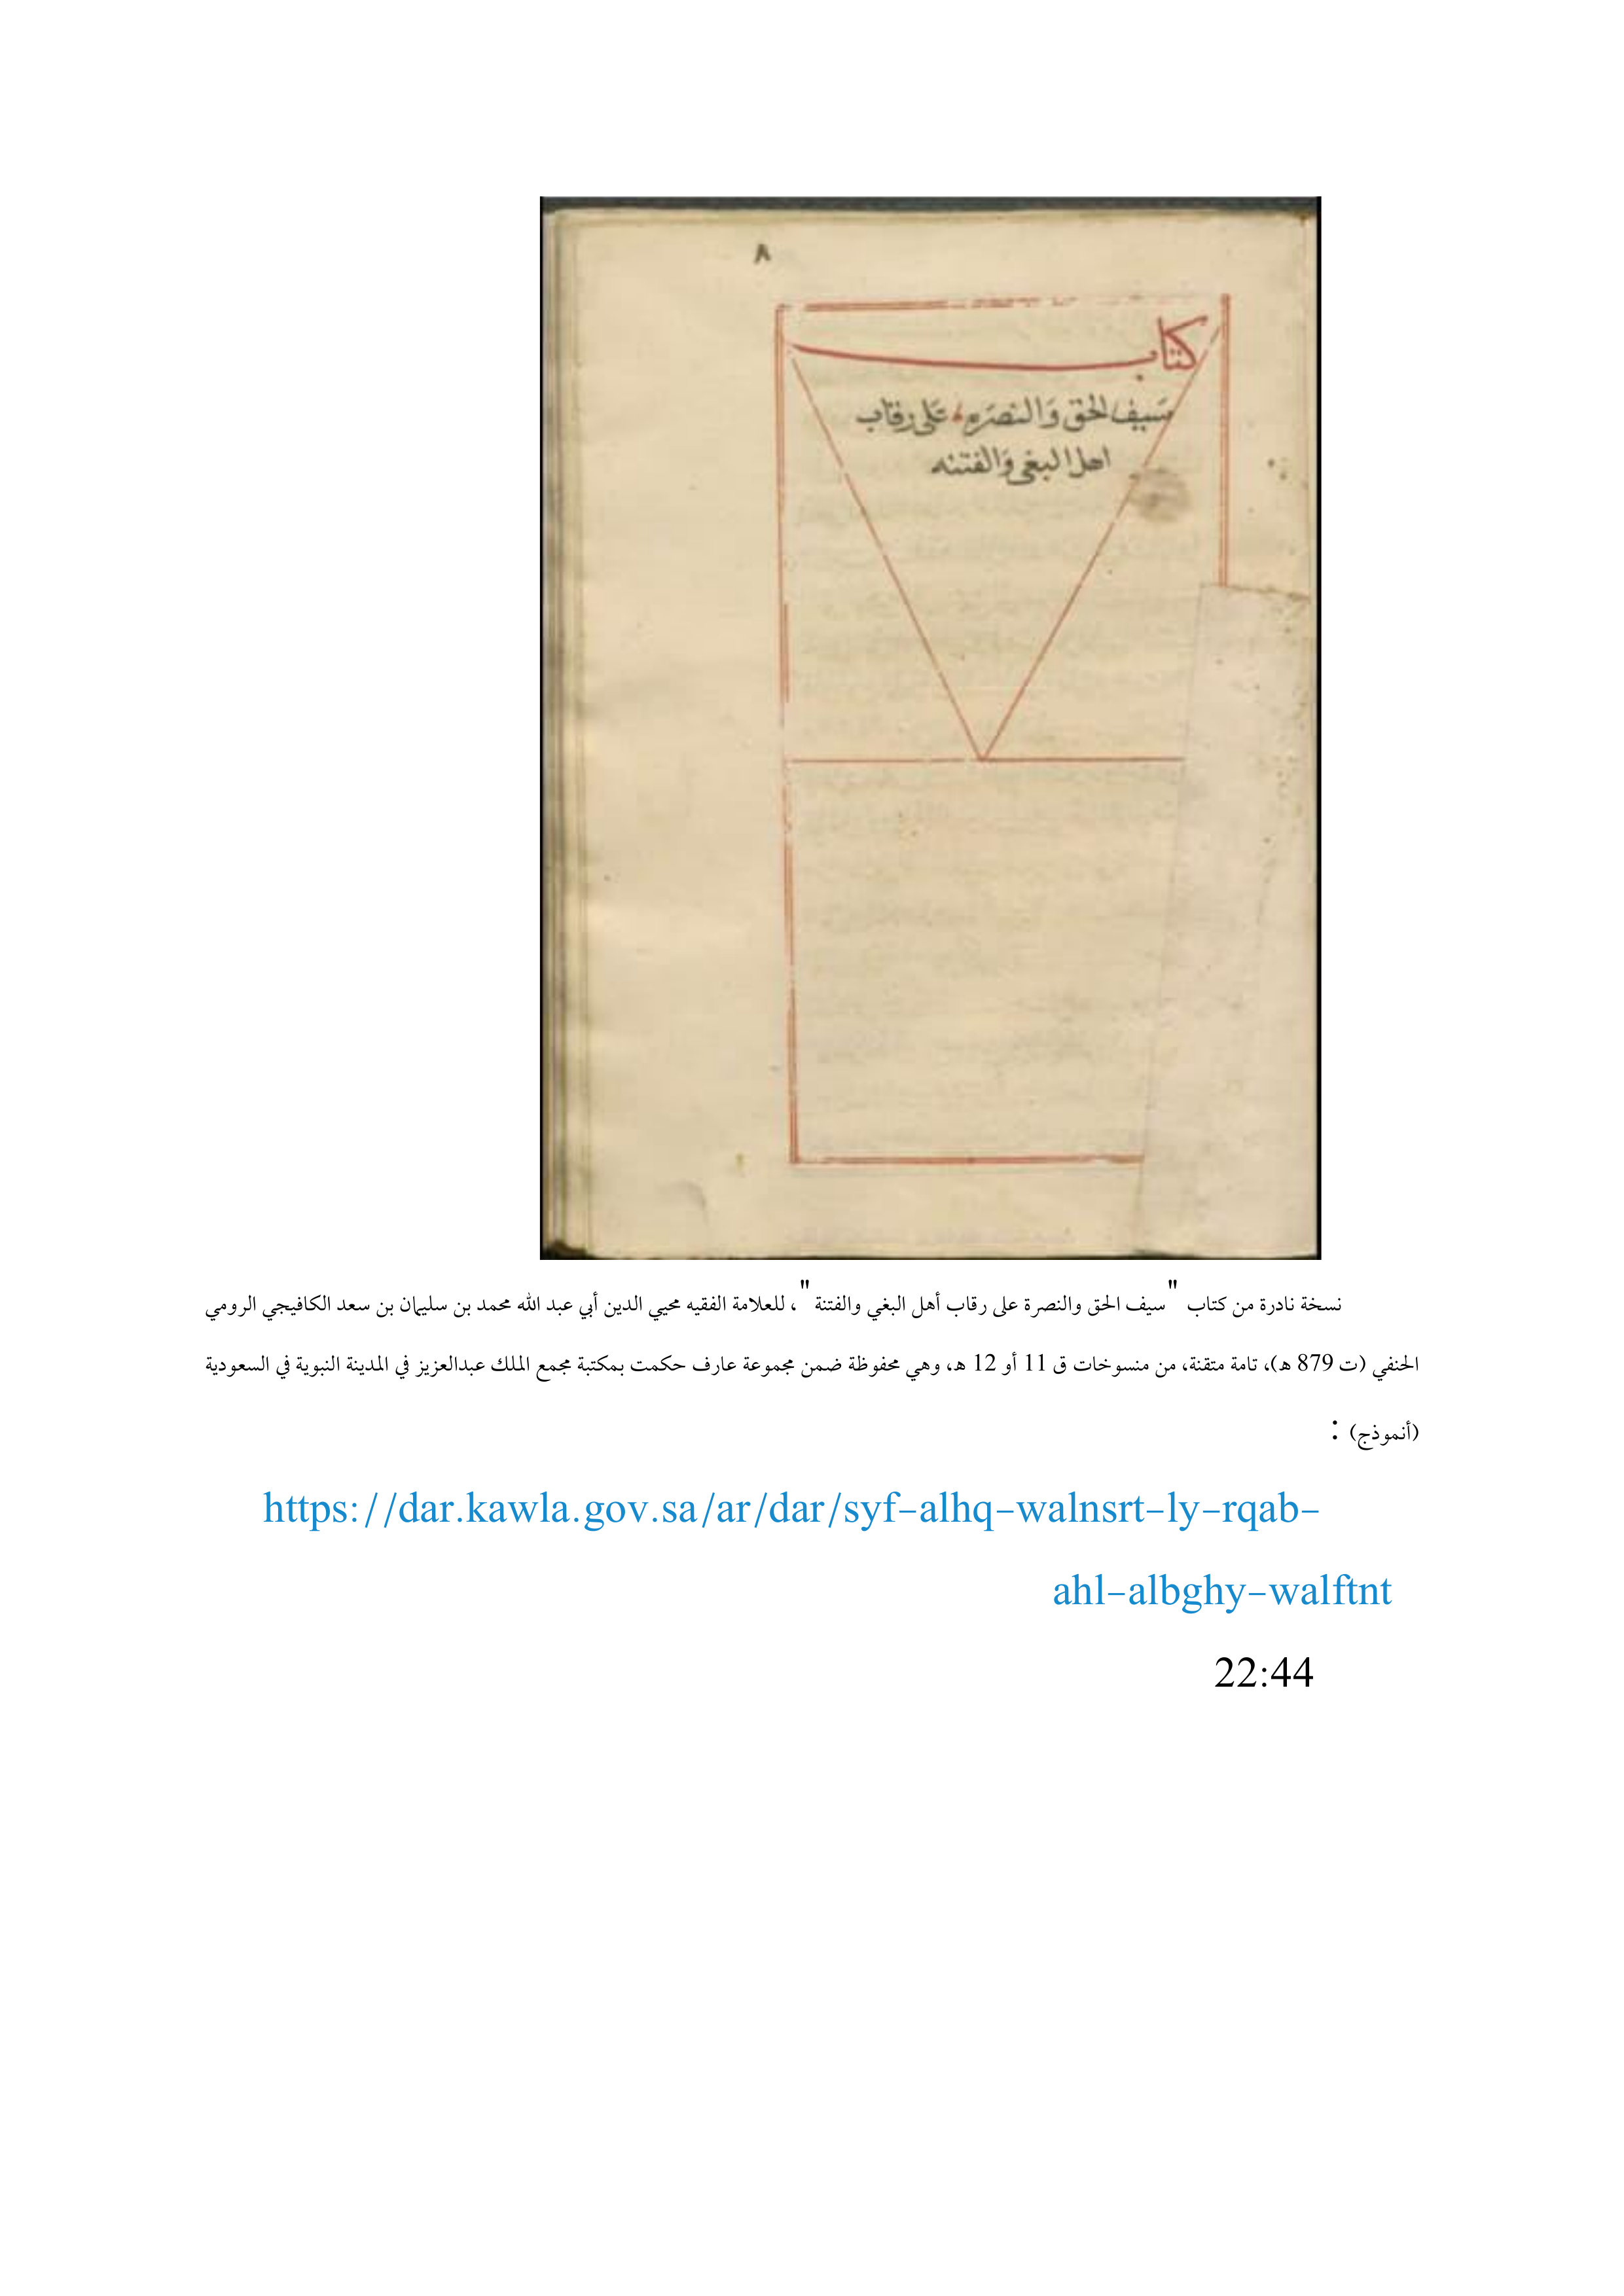 ٨
كتاب
سَيف الحق وَالنصرَه عَلى رقاب
اهل البغى وَالفتنه
نسخة نادرة من كتاب "سيف الحق والنصرة على رقاب أهل البغي والفتنة"، للعلامة الفقيه محيي الدين أبي عبد الله محمد بن سليمان بن سعد الكافيجي الرومي
الحنفي (ت 879 هـ)، تامة متقنة، من منسوخات ق 11 أو 12 هـ، وهي محفوظة ضمن مجموعة عارف حكمت بمكتبة مجمع الملك عبدالعزيز في المدينة النبوية في السعودية
(أنموذج) :
https://dar.kawla.gov.sa/ar/dar/syf-alhq-walnsrt-ly-rqab-
ahl-albghy-walftnt
22:44